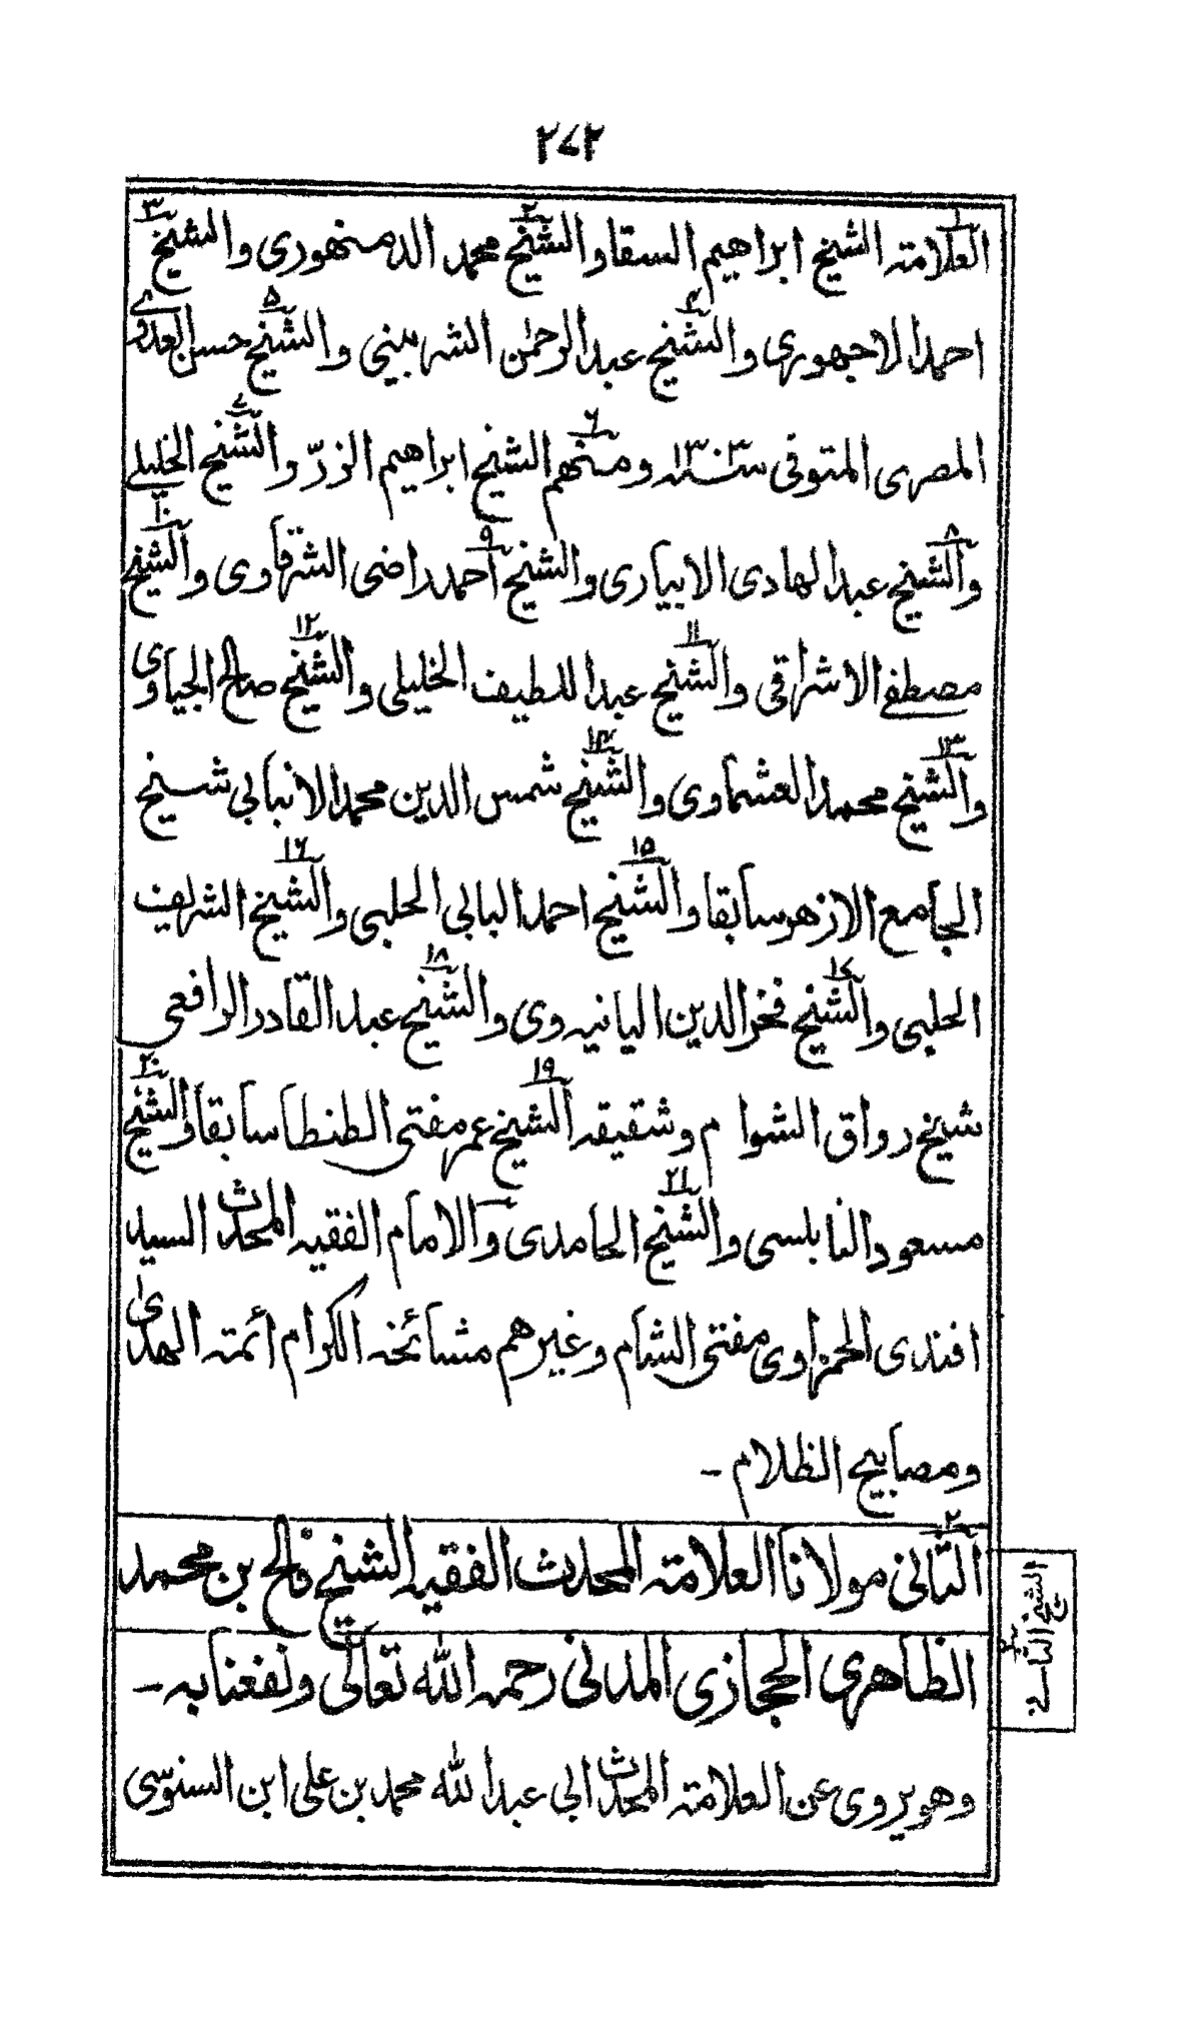 ٢٧٢
العلامة الشيخ ابراهيم السقا و الشيخ محمد الدمنهوري والشيخ
احمد الاجهوري والشيخ عبد الرحمن الشربيني والشيخ حسن العدوي
المصري المتوفى سنة ١٣٠٣ ومنهم الشيخ ابراهيم الزرّو والشيخ الخليلي
والشيخ عبد الهادي الابياري والشيخ احمد راضي الشرقاوي والشيخ
مصطفى الاشراقي والشيخ عبد اللطيف الخليلي والشيخ صالح الجياوي
والشيخ محمد العشماوي والشيخ شمس الدين محمد الانبابي شيخ
الجامع الازهر سابقا والشيخ احمد البابي الحلبي والشيخ الشريف
الحلبي والشيخ فخر الدين اليانيه وي والشيخ عبد القادر الرافعي
شيخ رواق الشوام وشقيقه الشيخ عمر مفتي الطنطا سابقا والشيخ
مسعود النابلسي والشيخ الحامدي والامام الفقيه المحدث السيد
افندي الحمزاوي مفتي الشام وغيرهم مشائخه الكرام ائمة الهدى
ومصابيح الظلام -
الثاني مولانا العلامة المحدث الفقيه الشيخ فالح بن محمد
الظاهري الحجازي المدني رحمه الله تعالى ونفعنا به -
وهو يروي عن العلامة المحدث ابي عبد الله محمد بن علي ابن السنوسي
الشيخ الثاني